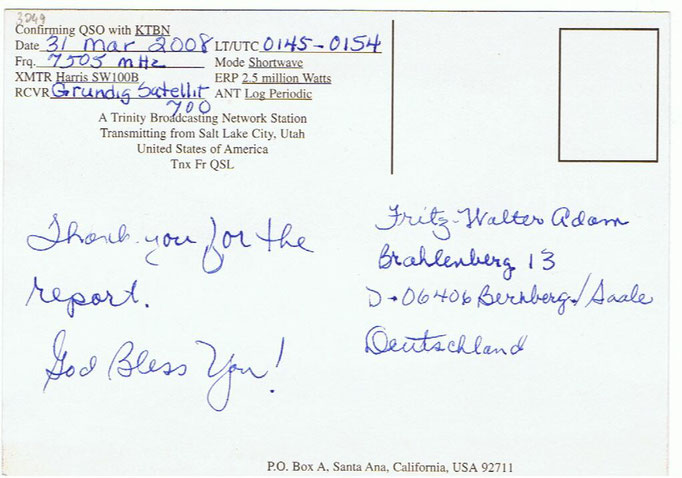 3249
Confirming QSO with KTBN
Date 31 Mar 2008 LT/UTC 0145-0154
Frq. 7505 mHz Mode Shortwave
XMTR Harris SW100B ERP 2.5 million Watts
RCVR Grundig Satellit 700 ANT Log Periodic
A Trinity Broadcasting Network Station
Transmitting from Salt Lake City, Utah
United States of America
Tnx Fr QSL
Thank you for the
report.
God Bless You!
Fritz-Walter Adam
Brahlenberg 13
D-06406 Bernberg/Saale
Deutschland
P.O. Box A, Santa Ana, California, USA 92711